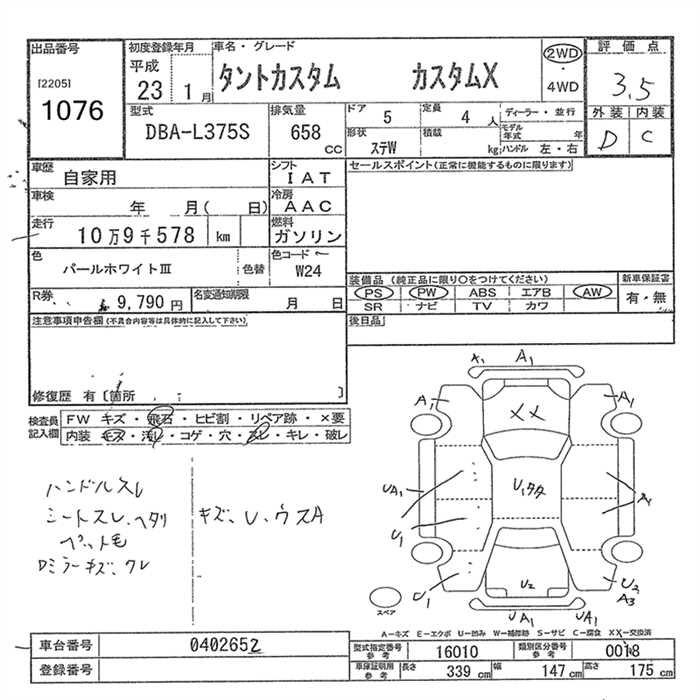 出品番号
[2205]
1076
初度登録年月
平成
23 1月
車名・グレード
タントカスタム カスタムX
2WD
・
4WD
評価点
3.5
外装 内装
D C
型式
DBA-L375S
排気量
658
CC
ドア 5
定員 4 人
ディーラー・並行
形状 ステW
積載 kg
モデル年式 年
ハンドル 左・右
車歴
自家用
シフト
IAT
車検
年 月( 日)
冷房
AAC
走行
10万9千578 km
燃料
ガソリン
色
パールホワイトⅢ
色替
色コード
W24
R券
9,790 円
名変通知期限
月 日
セールスポイント(正常に機能するものに限ります)
装備品(純正品に限り○をつけてください)
PS PW ABS エアB AW
SR ナビ TV カワ
新車保証書
有・無
後日品
注意事項申告欄(不具合内容等は具体的に記入して下さい)
修復歴 有〔箇所 〕
検査員
記入欄
FW キズ・飛石・ヒビ割・リペア跡・×要
内装 キズ・汚レ・コゲ・穴・スレ・キレ・破レ
ハンドルスレ
シートスレ、ヘタリ
ペット毛
Dミラーキズ、ワレ
キズ、U、ウスA
X1 A1
A1 A1
XX
UA1
U1タタ
A1
U1
U1
U2
U2
A3
UA1 UA1
スペア
A-キズ E-エクボ U-凹み W-補修跡 S-サビ C-腐食 XX-交換済
車台番号 0402652
登録番号
型式指定番号
参考
16010
類別区分番号
参考
0018
車庫証明用
参考
長さ 339 cm 幅 147 cm 高さ 175 cm